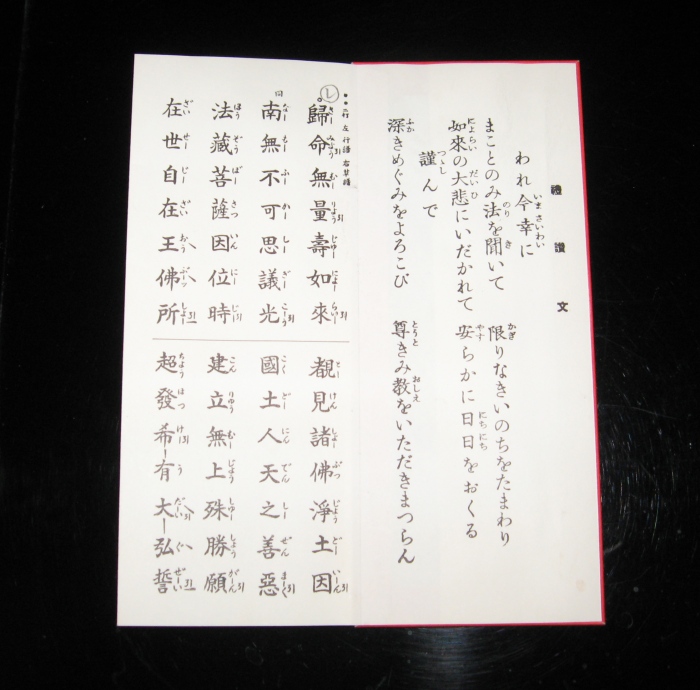 禮讃文
われ今幸に
まことのみ法を聞いて
限りなきいのちをたまわり
如來の大悲にいだかれて
安らかに日日をおくる
謹んで
深きめぐみをよろこび
尊きみ教をいただきまつらん
左行譜右草譜
歸命無量壽如來
南無不可思議光
法藏菩薩因位時
在世自在王佛所
覩見諸佛淨土因
國土人天之善惡
建立無上殊勝願
超發希有大弘誓